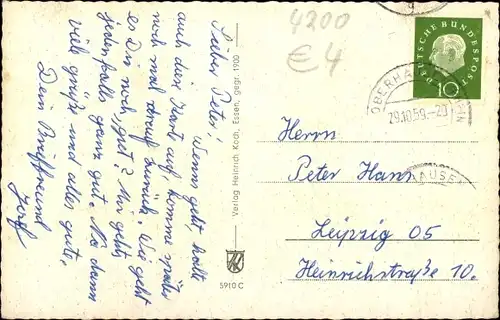 Lieber Peter! Wenn's geht, heilt
auch diese Karte auf, komme später
noch mal drauf zurück. Wie geht
es Dir noch, gut? Mir geht's
jedenfalls ganz gut. Na dann
viele Grüße und alles gute.
Dein Brieffreund
Verlag Heinrich Koch, Essen, gegr. 1900
5910 C
4200
€4
DEUTSCHE BUNDESPOST
10
OBERHAUSEN
29.10.59.-20
Herrn
Peter Hans
Leipzig O5
Heinrichstraße 10.